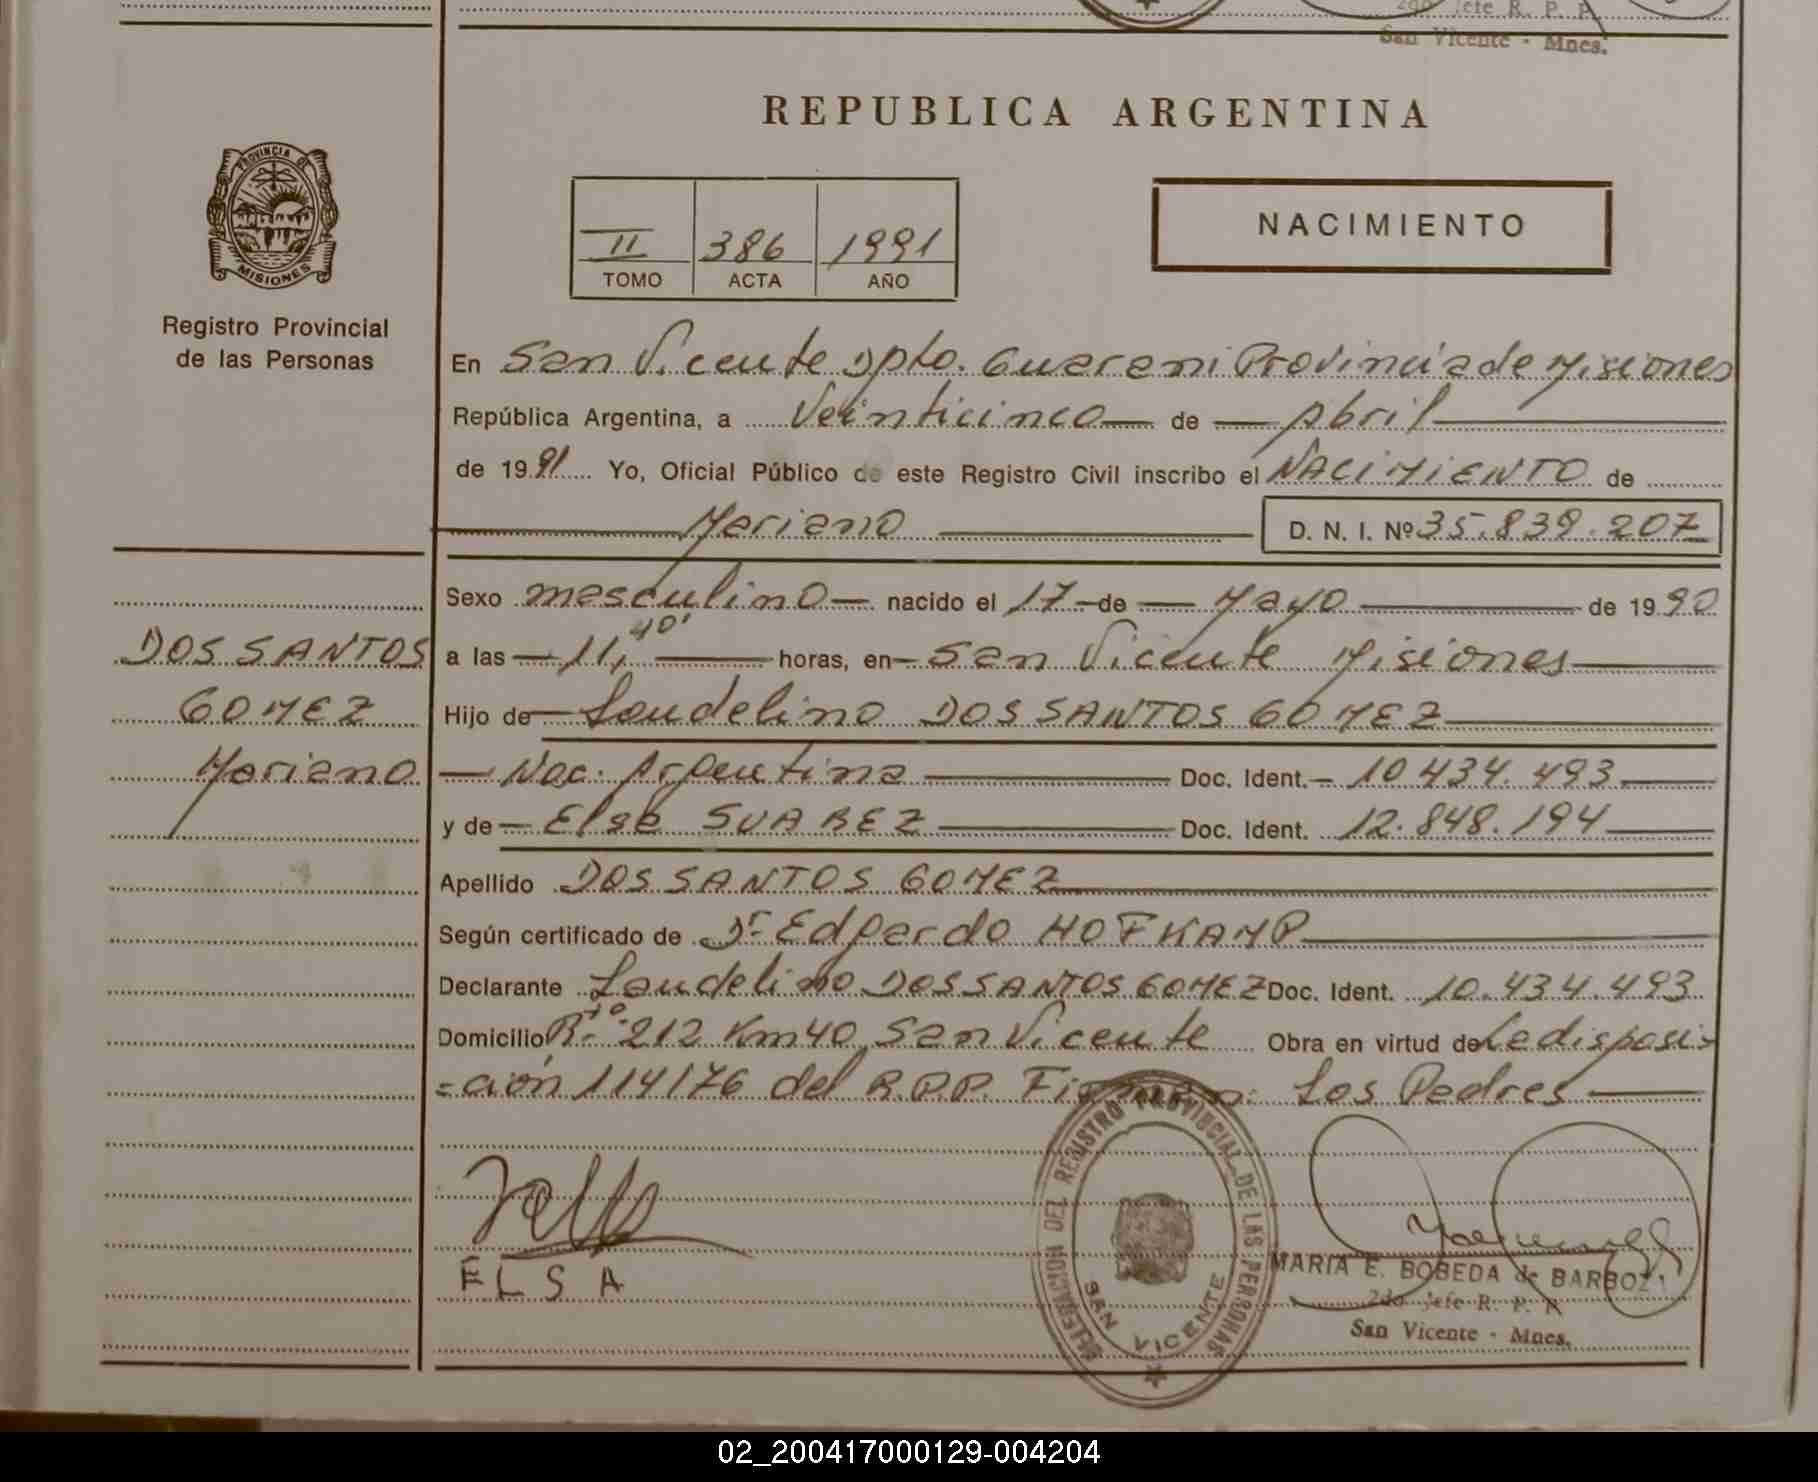 2do Jefe R. P. P.
San Vicente - Mnes.
REPUBLICA ARGENTINA
PROVINCIA DE
MISIONES
II 386 1991
TOMO ACTA AÑO
NACIMIENTO
Registro Provincial
de las Personas
En San Vicente Dpto. Guarani Provincia de Misiones
República Argentina, a Veinticinco de Abril
de 1991 Yo, Oficial Público de este Registro Civil inscribo el NACIMIENTO de
Mariano D. N. I. Nº 35.839.207
DOS SANTOS
GOMEZ
Mariano
Sexo masculino nacido el 17 de Mayo de 1990
a las 11,40' horas, en San Vicente Misiones
Hijo de Laudelino DOS SANTOS GOMEZ
Nac. Argentina Doc. Ident. 10.434.493
y de Elsa SUAREZ Doc. Ident. 12.848.194
Apellido DOS SANTOS GOMEZ
Según certificado de Dr. Edgardo HOFKAMP
Declarante Laudelino DOS SANTOS GOMEZ Doc. Ident. 10.434.493
Domicilio R.N. 212 Km 40 San Vicente Obra en virtud de La disposi-
=ción 114/76 del R.P.P. Firman: Los Padres
ELSA
DELEGACION DEL REGISTRO PROVINCIAL DE LAS PERSONAS
SAN VICENTE
MARIA E. BOBEDA de BARBOZA
2do Jefe R. P. P.
San Vicente - Mnes.
02_200417000129-004204